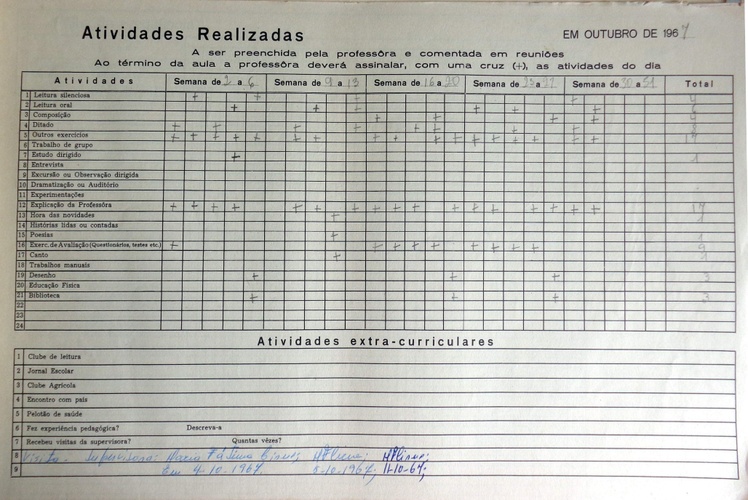 Atividades Realizadas
EM OUTUBRO DE 1967
A ser preenchida pela professôra e comentada em reuniões
Ao término da aula a professôra deverá assinalar, com uma cruz (+), as atividades do dia
Atividades Semana de 2 a 6 Semana de 9 a 13 Semana de 16 a 20 Semana de a Semana de 30 a 31 Total
1 Leitura silenciosa + + + +
2 Leitura oral + + + + + +
3 Composição + + + +
4 Ditado + + + + + + + +
5 Outros exercícios + + + + + + + + + + + + + + + + + 17
6 Trabalho de grupo
7 Estudo dirigido + 1
8 Entrevista
9 Excursão ou Observação dirigida
10 Dramatização ou Auditório
11 Experimentações
12 Explicação da Professôra + + + + + + + + + + + + + + + + +
13 Hora das novidades + 1
14 Histórias lidas ou contadas
15 Poesias + 1
16 Exerc. de Avaliação (Questionários, testes etc.) + + + + + + + + + 9
17 Canto + 1
18 Trabalhos manuais
19 Desenho + + + 3
20 Educação Física
21 Biblioteca + + + 3
22
23
24
Atividades extra-curriculares
1 Clube de leitura
2 Jornal Escolar
3 Clube Agrícola
4 Encontro com pais
5 Pelotão de saúde
6 Fez experiência pedagógica? Descreva-a
7 Recebeu visitas da supervisora? Quantas vêzes?
8 Visita - Supervisora: Maria Fátima
9 Em 4-10-1967, -10-1967; 11-10-67;